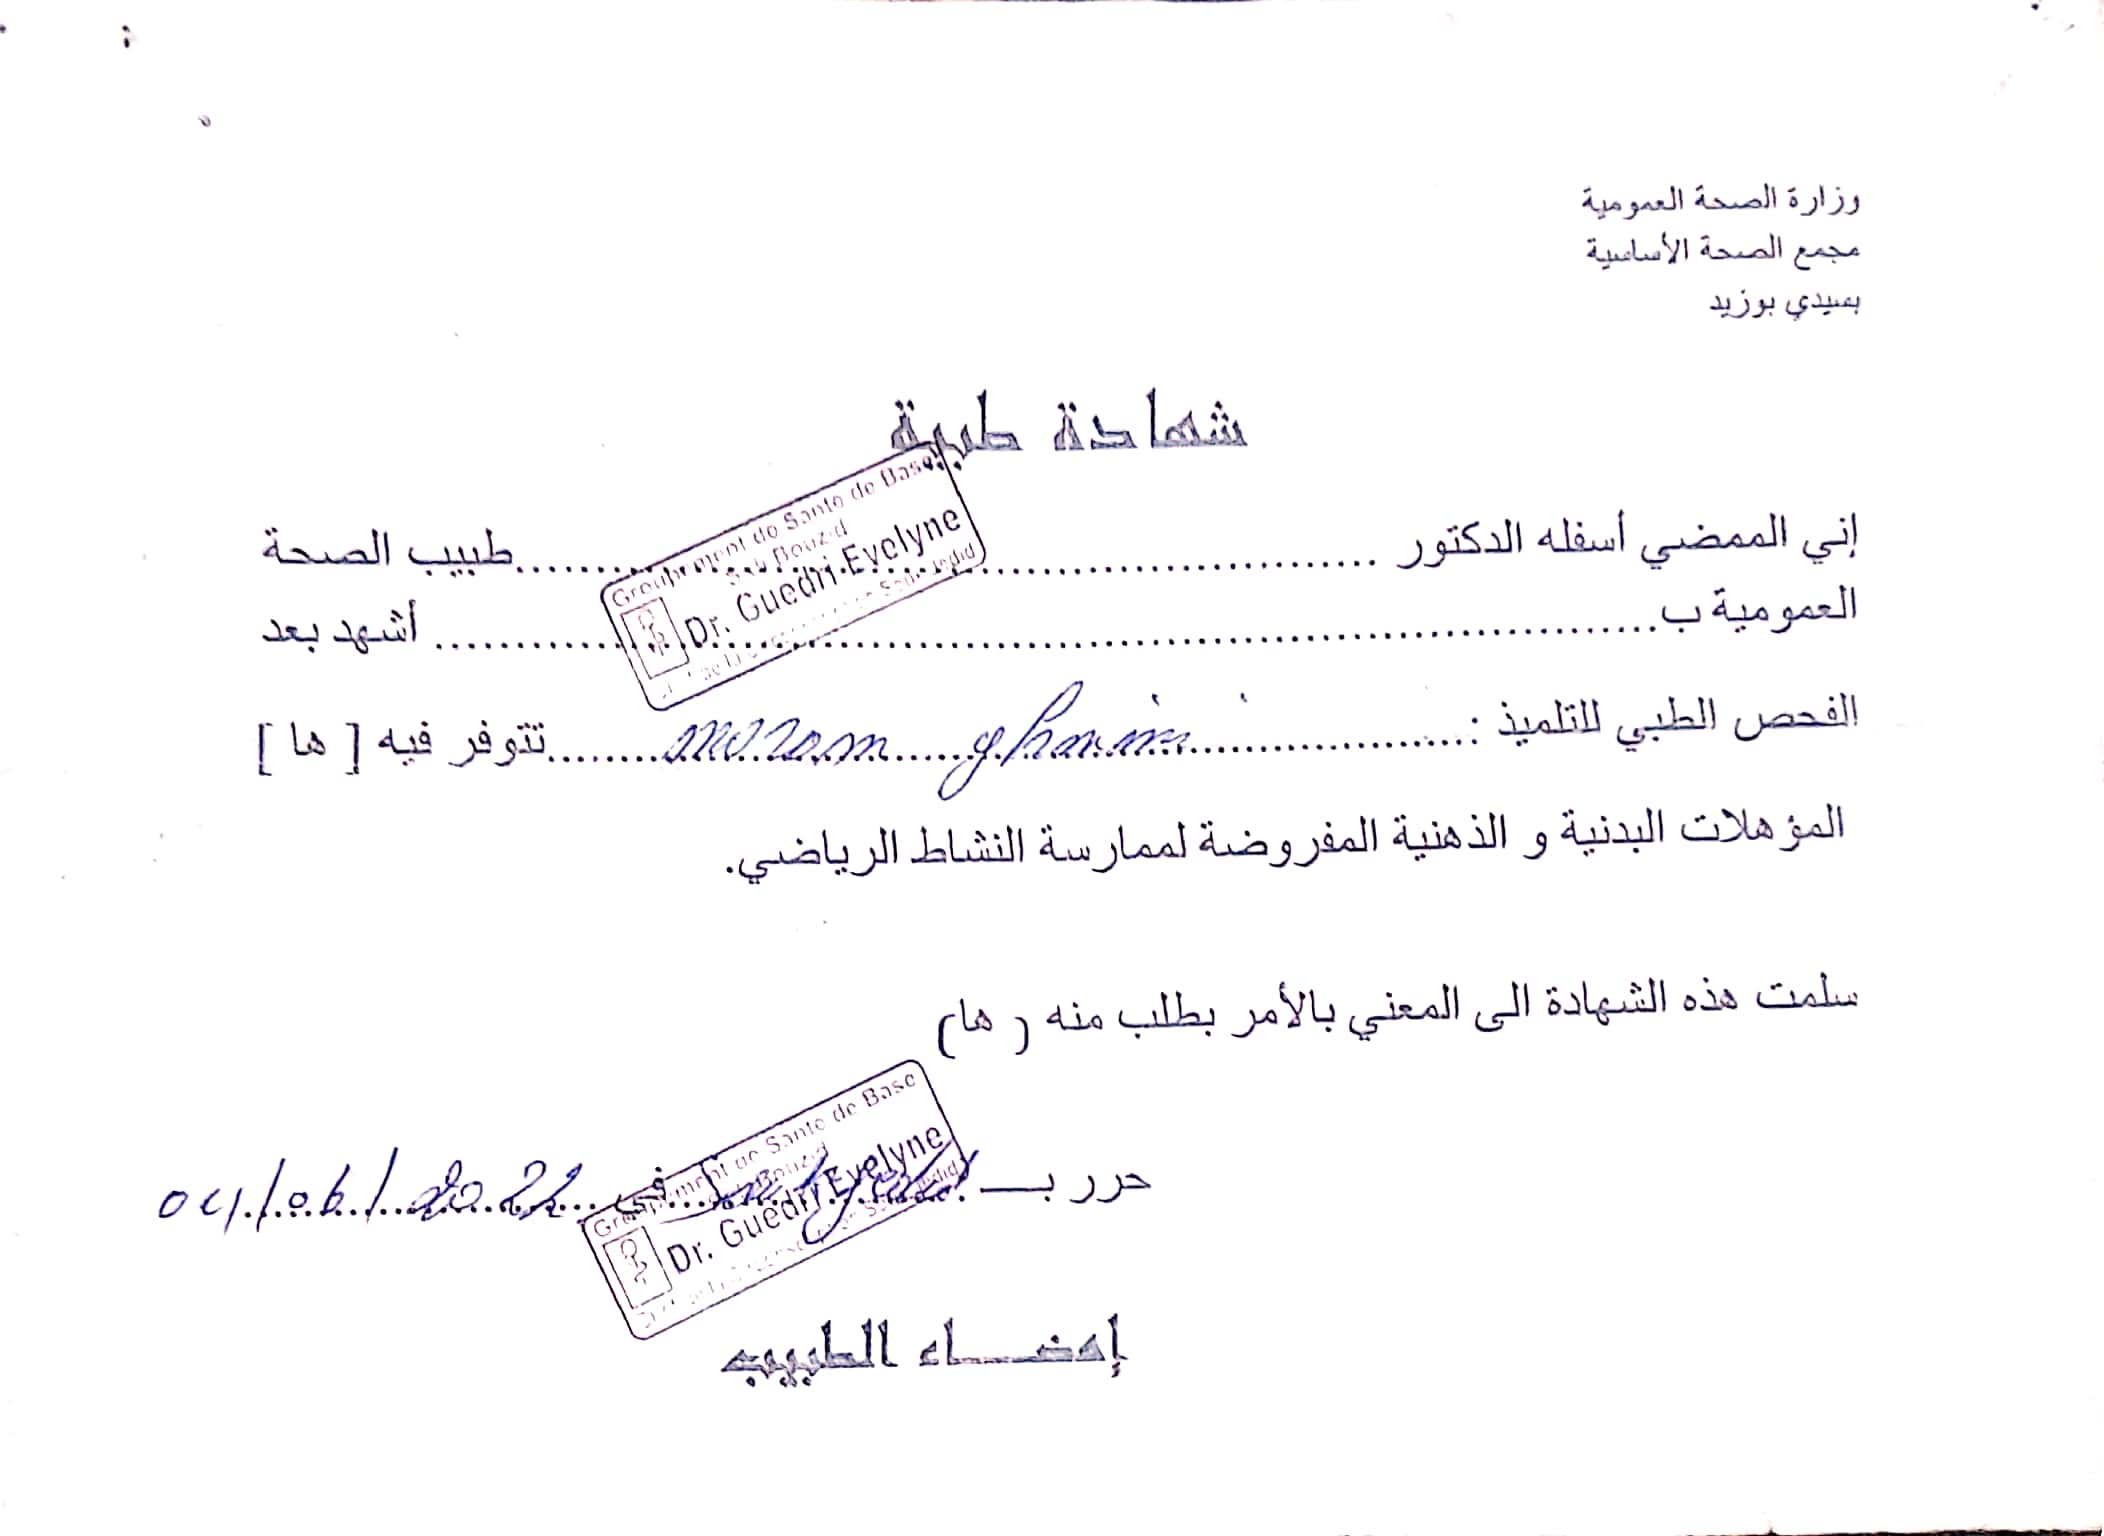 وزارة الصحة العمومية
مجمع الصحة الأساسية
بسيدي بوزيد
شهادة طبية
إني الممضي أسفله الدكتور ........................ طبيب الصحة
العمومية ب........................ أشهد بعد
Groupement de Sante de Base
Sidi Bouzid
Dr. Guedri Evelyne
الفحص الطبي للتلميذ : ........ maram ghnimi ........ تتوفر فيه [ ها ]
المؤهلات البدنية و الذهنية المفروضة لممارسة النشاط الرياضي.
سلمت هذه الشهادة الى المعني بالأمر بطلب منه ( ها)
حرر بـ ........ في ........ 04/06/2022
Groupement de Sante de Base
Dr. Guedri Evelyne
إمضاء الطبيب